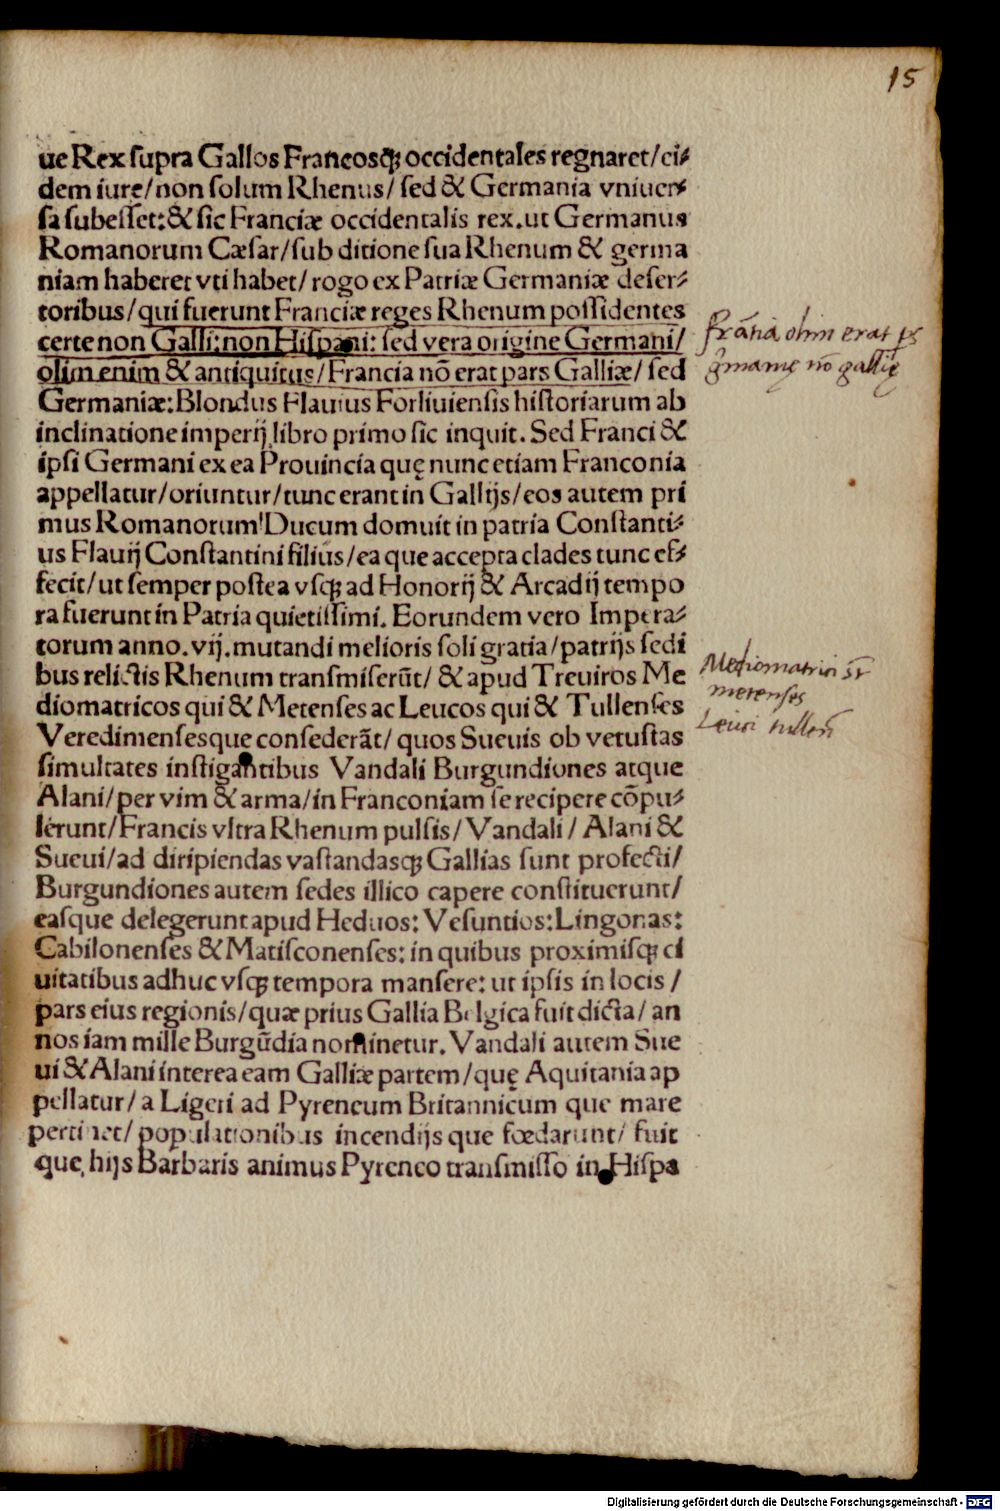 15
ue Rex ſupra Gallos Francosqꝫ occidentales regnaret/ei⸗
dem iure/non ſolum Rhenus/ ſed & Germania vniuer⸗
ſa ſubeſſet:& ſic Franciæ occidentalis rex.ut Germanus
Romanorum Cæſar/ſub ditione ſua Rhenum & germa
niam haberet vti habet/ rogo ex Patriæ Germaniæ deſer⸗
toribus/qui fuerunt Franciæ reges Rhenum poſſidentes
certe non Galli:non Hiſpani: ſed vera origine Germani/
olim enim & antiquitus/Francia nõ erat pars Galliæ/ ſed
Germaniæ:Blondus Flauius Forliuienſis hiſtoriarum ab
inclinatione imperij libro primo ſic inquit. Sed Franci &
ipſi Germani ex ea Prouincia quę nunc etiam Franconia
appellatur/oriuntur/tunc erant in Gallijs/eos autem pri
mus Romanorum Ducum domuit in patria Conſtanti⸗
us Flauij Conſtantini filius/ea que accepta clades tunc ef⸗
fecit/ut ſemper poſtea vſqꝫ ad Honorij & Arcadij tempo
ra fuerunt in Patria quietiſſimi. Eorundem vero Impera⸗
torum anno.vij.mutandi melioris ſoli gratia/patrijs ſedi
bus relictis Rhenum transmiſerũt/ & apud Treuiros Me
diomatricos qui & Metenſes ac Leucos qui & Tullenſes
Veredimenſesque conſederãt/ quos Sueuis ob vetuſtas
ſimultates inſtigantibus Vandali Burgundiones atque
Alani/per vim & arma/in Franconiam ſe recipere cõpu⸗
lerunt/Francis vltra Rhenum pulſis/ Vandali / Alani &
Sueui/ad diripiendas vaſtandasqꝫ Gallias ſunt profecti/
Burgundiones autem ſedes illico capere conſtituerunt/
easque delegerunt apud Heduos: Veſuntios:Lingonas:
Cabilonenſes & Matiſconenſes: in quibus proximiſqꝫ ci
uitatibus adhuc vſqꝫ tempora manſere: ut ipſis in locis /
pars eius regionis/quæ prius Gallia Belgica fuit dicta/ an
nos iam mille Burgũdia nominetur. Vandali autem Sue
ui & Alani interea eam Galliæ partem/quę Aquitania ap
pellatur/ a Ligeri ad Pyreneum Britannicum que mare
pertinet/ populationibus incendijs que fœdarunt/ fuit
que hijs Barbaris animus Pyreneo transmiſſo in Hiſpa
frãtia olim erat ps
gr̃manię nõ gallię
Mediomatrici st
metenses
Leuci tullen̄
Digitalisierung gefördert durch die Deutsche Forschungsgemeinschaft - DFG